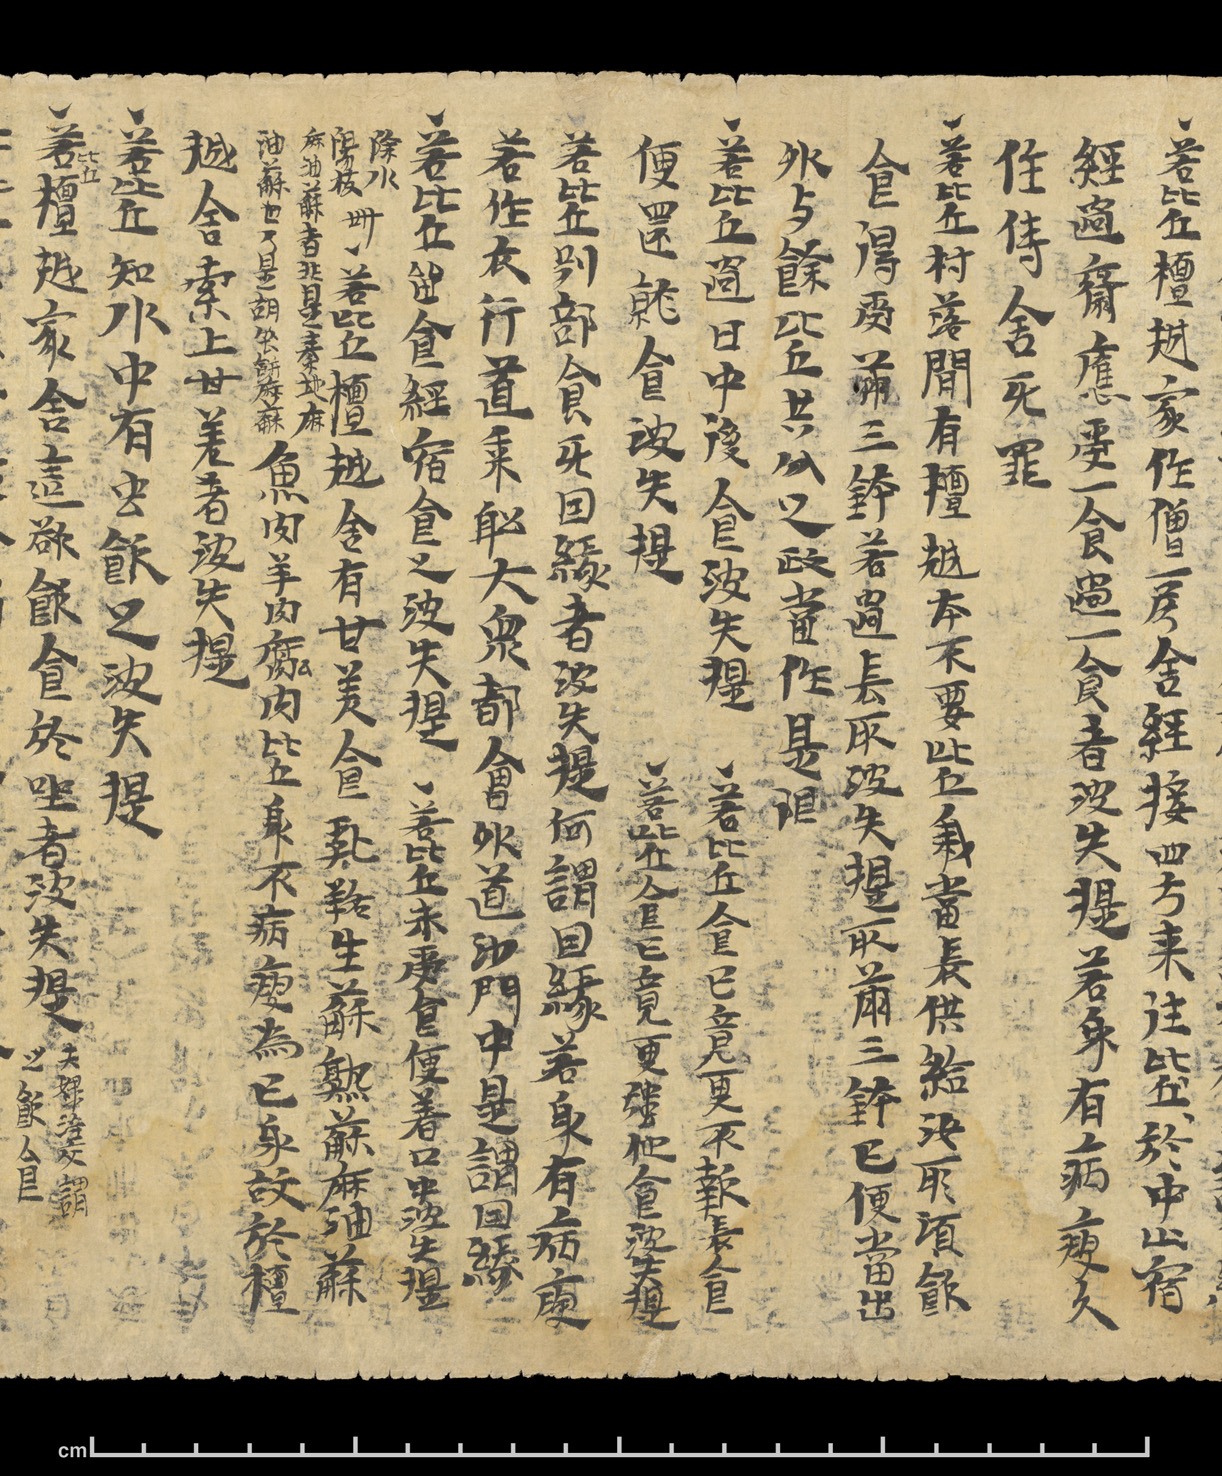 若比丘檀越家作僧房舍經接四方来往比丘於中止宿
經過齋應受一食過一食者波失提若身有病瘦久
住侍舍无罪
若比丘村落間有檀越本不要比丘氣當長供給決所須飯
食得受兩三鉢若過長取波失提取兩三鉢已便當出
外与餘比丘共分之政當作是
若比丘過日中後食波失提 若比丘食已竟更不報長食
便還就食波失提 若比丘食已竟更殘他食波失提
若比丘別部食无因緣者波失提何謂因緣若身有病瘦
若作衣行道乘船大衆都會外道沙門中是謂因緣
若比丘留食經宿食之波失提 若比丘未受食便著口中波失提
除水
陽枝 若比丘檀越舍有甘美食乳酪生蘇熟蘇麻油蘇
麻油蘇者非是秦地麻
油蘇也乃是胡麻蘇 魚肉羊肉腐肉比丘身不病瘦為已身故於檀
越舍索上甘美者波失提
若比丘知水中有虫飲之波失提
若比丘檀越家舍這欲飯食於坐者波失提 夫婦 謂
之飯食